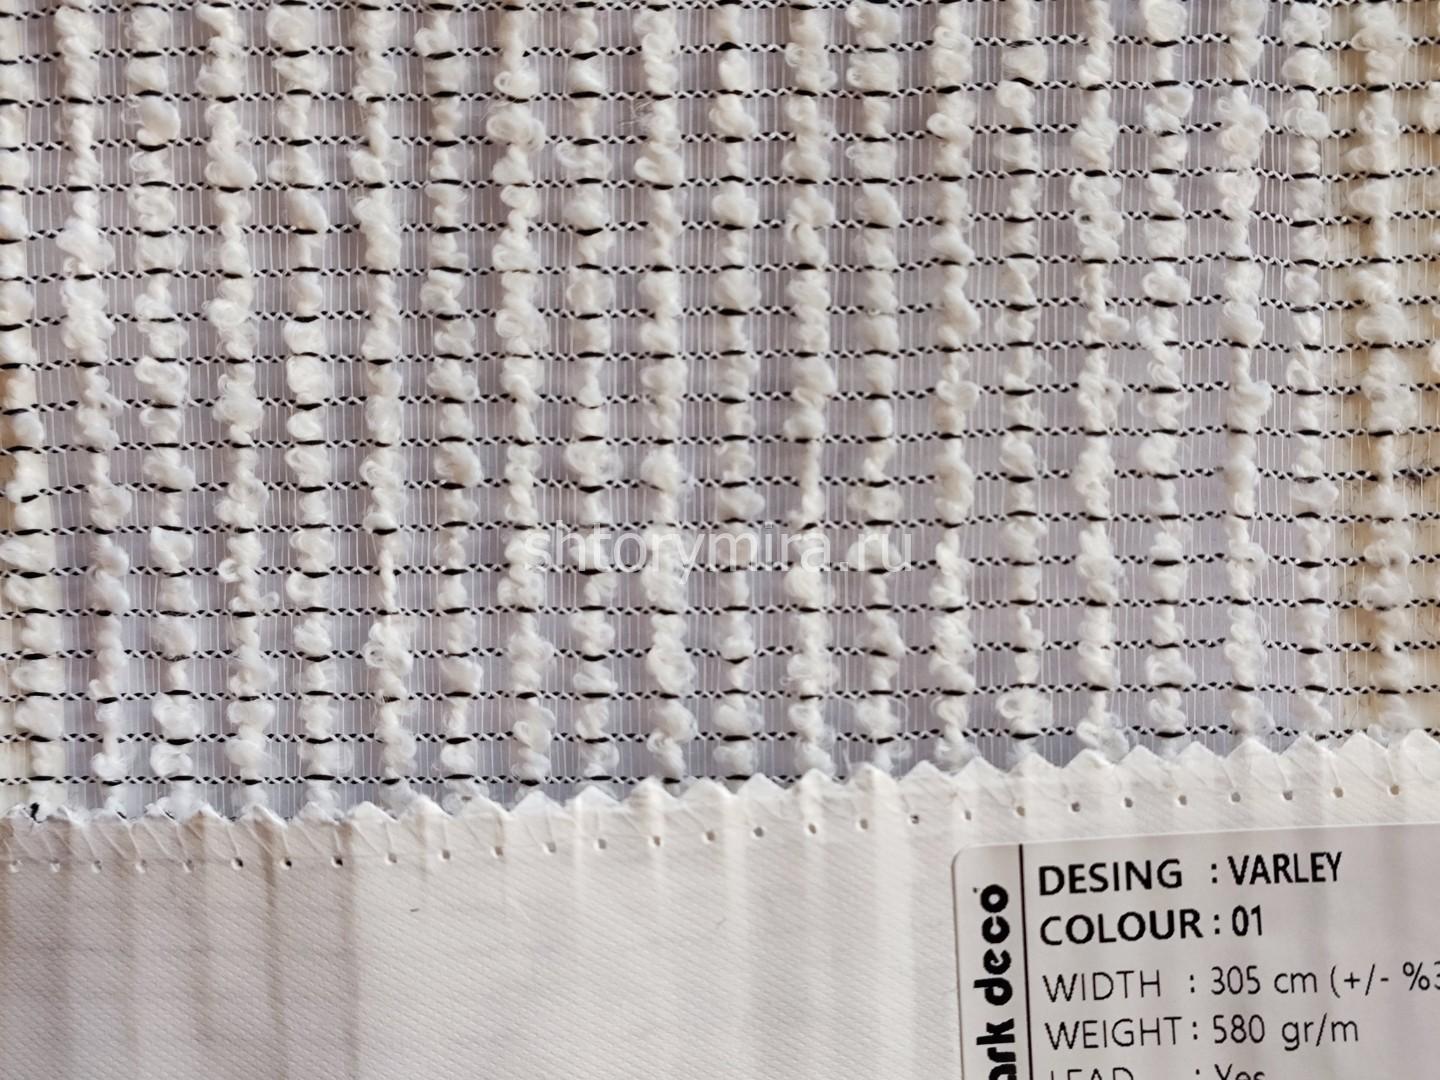 shtorymira.ru
DESING : VARLEY
COLOUR : 01
WIDTH : 305 cm (+/- %3
WEIGHT : 580 gr/m
LEAD : Yes
ark deco